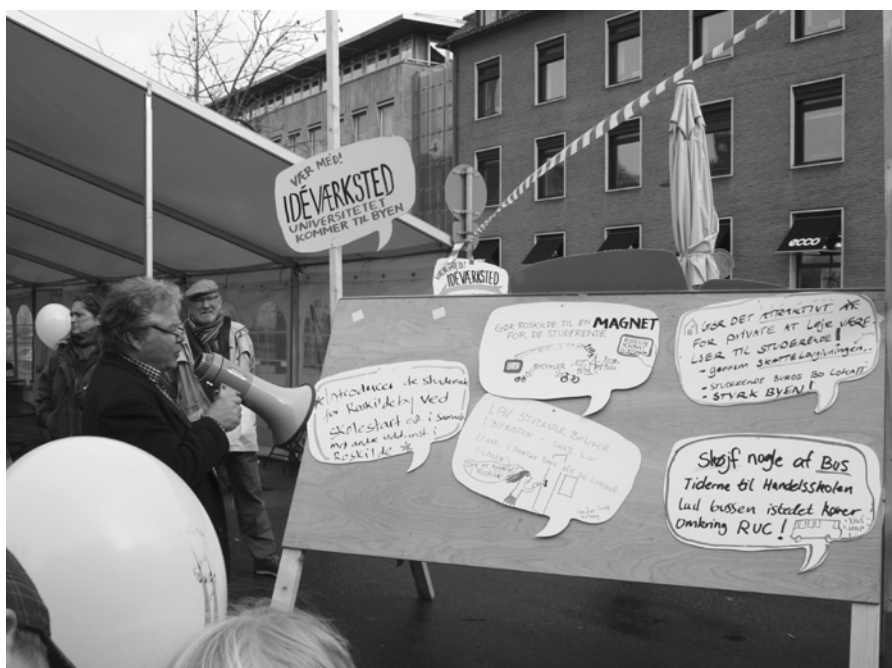 VÆR MED!
IDÉVÆRKSTED
UNIVERSITETET
KOMMER TIL BYEN
VÆR MED!
IDÉVÆRKSTED
ecco
GØR ROSKILDE TIL EN MAGNET
FOR DE STUDERENDE
GØR DET ATTRAKTIVT
FOR PRIVATE AT Leje VÆRE
LSER TIL STUDERENDE!
- gennem SKATTELovgivningen..
- STUDERENDE BURDE BO LOKALT
- STYRK BYEN!
Introducer de studerende
for Roskilde by ved
skolestart
med andre udd.inst. i
Roskilde
LAV STUDENTER BOLIGER
I BYMIDTEN
Skøjf nogle af Bus
Tiderne til Handelsskolen
Lad bussen istedet kører
Omkring RUC!
BUS
STOP